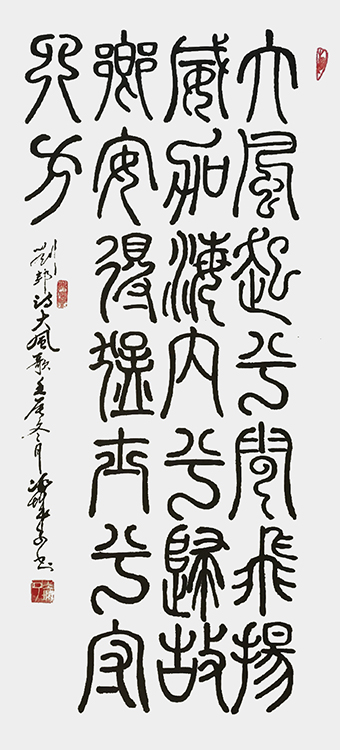 大風起兮雲飛揚
威加海內兮歸故
鄉安得猛士兮守
四方
劉邦詩大風歌壬辰冬月書